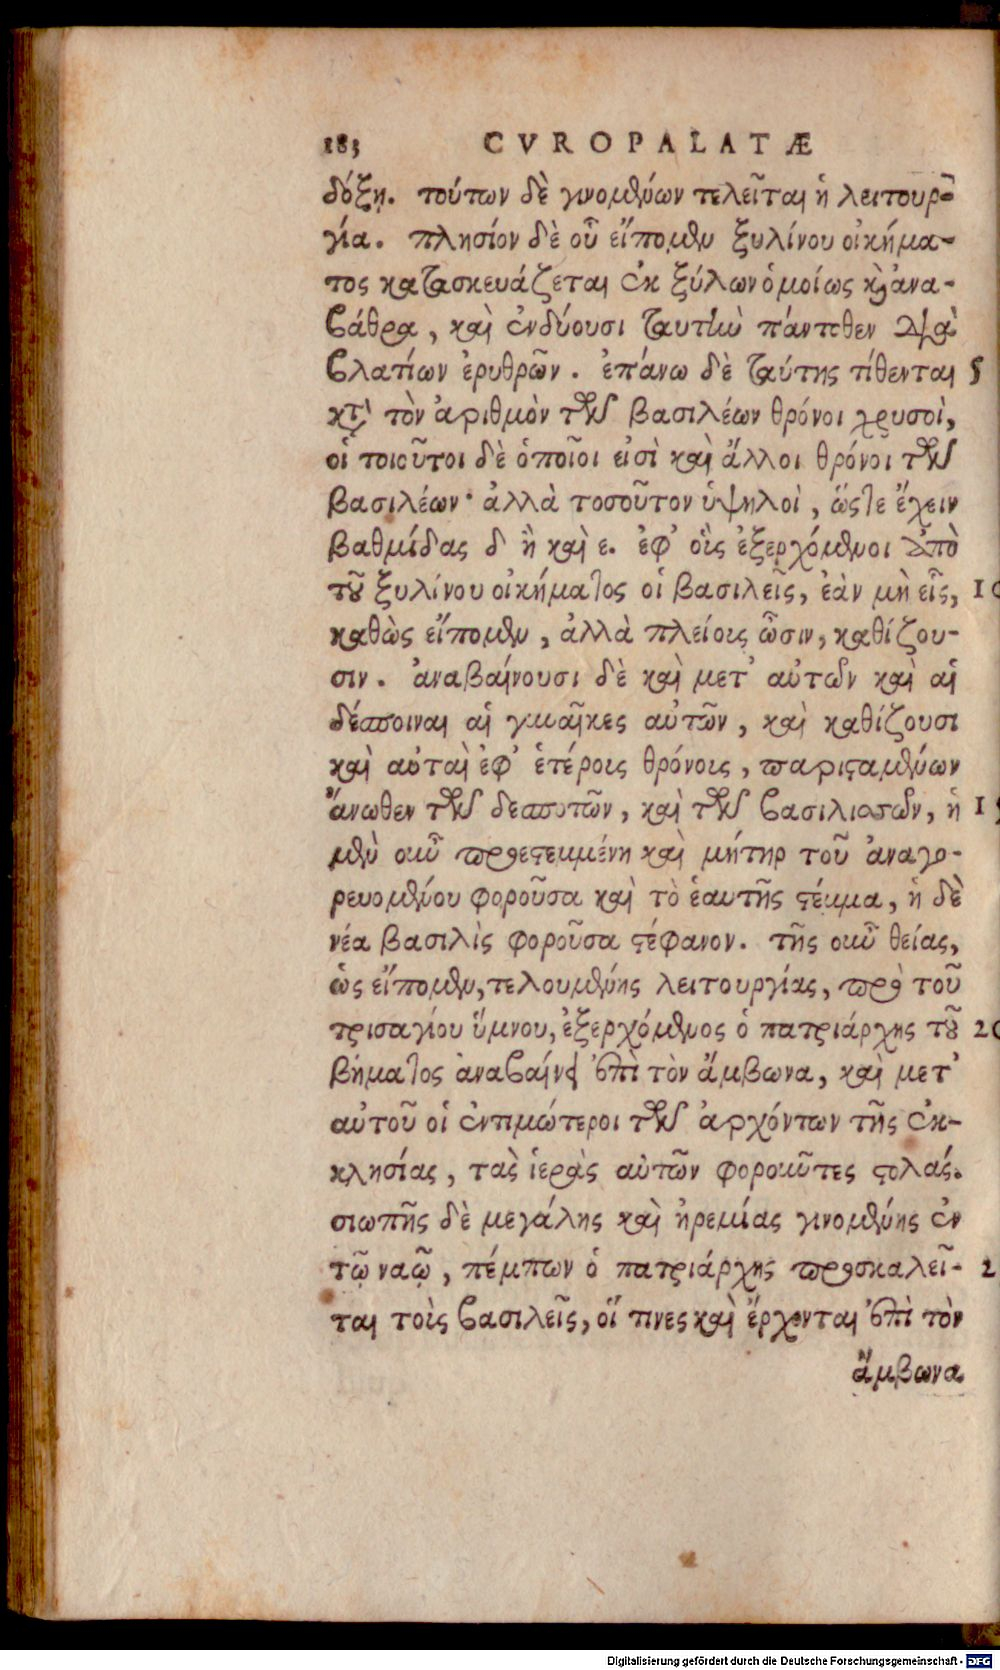 183 CVROPALATÆ
δόξῃ. τούτων δὲ γινομένων τελεῖται ἡ λειτουρ-
γία. πλησίον δὲ οὗ εἴπομεν ξυλίνου οἰκήμα-
τος κατασκευάζεται ἐκ ξύλων ὁμοίως καὶ ἀνα-
βάθρα, καὶ ἐνδύουσι ταυτὴν πάντοθεν διὰ
βλατίων ἐρυθρῶν. ἐπάνω δὲ ταύτης τίθενται 5
κατὰ τὸν ἀριθμὸν τῶν βασιλέων θρόνοι χρυσοὶ,
οἱ τοιοῦτοι δὲ ὁποῖοι εἰσὶ καὶ ἄλλοι θρόνοι τῶν
βασιλέων· ἀλλὰ τοσοῦτον ὑψηλοὶ, ὥστε ἔχειν
βαθμίδας δ ἢ καὶ ε. ἐφ' οἷς ἐξερχόμενοι ἀπὸ
τοῦ ξυλίνου οἰκήματος οἱ βασιλεῖς, ἐὰν μὴ εἷς, 10
καθὼς εἴπομεν, ἀλλὰ πλείοις ὦσιν, καθίζου-
σιν. ἀναβαίνουσι δὲ καὶ μετ' αὐτῶν καὶ αἱ
δέσποιναι αἱ γυναῖκες αὐτῶν, καὶ καθίζουσι
καὶ αὐταὶ ἐφ' ἑτέροις θρόνοις, παρισταμένων
ἄνωθεν τῶν δεσποτῶν, καὶ τῶν βασιλισσῶν, ἡ 15
μὲν οὖν προεστεμμένη καὶ μήτηρ τοῦ ἀναγο-
ρευομένου φοροῦσα καὶ τὸ ἑαυτῆς στέμμα, ἡ δὲ
νέα βασιλὶς φοροῦσα στέφανον. τῆς οὖν θείας,
ὡς εἴπομεν, τελουμένης λειτουργίας, πρὸ τοῦ
τρισαγίου ὕμνου, ἐξερχόμενος ὁ πατριάρχης τοῦ 20
βήματος ἀναβαίνει ἐπὶ τὸν ἄμβωνα, καὶ μετ'
αὐτοῦ οἱ ἐντιμώτεροι τῶν ἀρχόντων τῆς ἐκ-
κλησίας, τὰς ἱερὰς αὐτῶν φοροῦντες στολάς.
σιωπῆς δὲ μεγάλης καὶ ἠρεμίας γινομένης ἐν
τῷ ναῷ, πέμπων ὁ πατριάρχης προσκαλεῖ- 2
ται τοὺς βασιλεῖς, οἵ τινες καὶ ἔρχονται ἐπὶ τὸν
ἄμβωνα
Digitalisierung gefördert durch die Deutsche Forschungsgemeinschaft - DFG